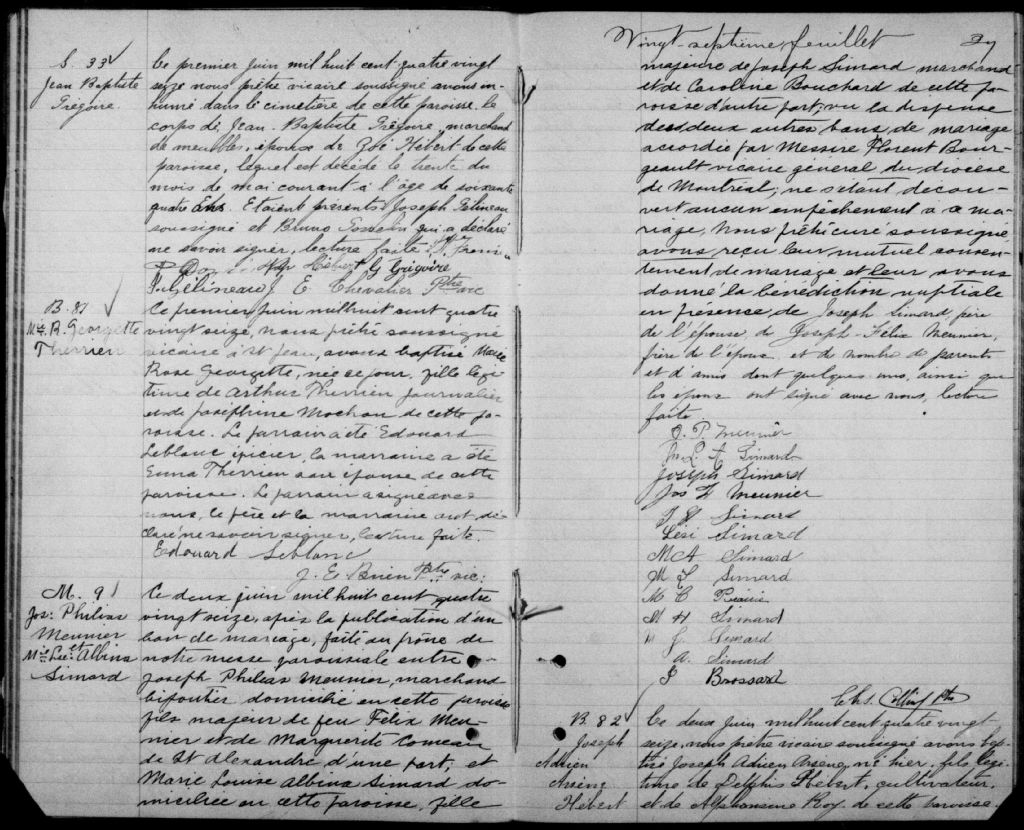 S. 33
Jean Baptiste
Grégoire.
Le premier juin mil huit cent quatre vingt
seize nous prêtre vicaire soussigné avons in-
humé dans le cimetière de cette paroisse le
corps de Jean-Baptiste Grégoire, marchand
de meubles, époux de Zoé Hébert de cette
paroisse, lequel est décédé le trente du
mois de mai courant à l'âge de soixante
quatre ans. Etaient présents Joseph Gélineau
soussigné et Bruno Gosselin qui a déclaré
ne savoir signer, lecture faite.
Hébert G Grégoire
J. Gélineau J. E Chevalier Ptre vic
B. 81
Mie R. Georgette
Therrien
Le premier juin mil huit cent quatre
vingt seize, nous prêtre soussigné
vicaire à St Jean, avons baptisé Marie
Rose Georgette, née ce jour, fille légi-
time de Arthur Therrien journalier
et de Joséphine Mochon de cette pa-
roisse. Le parrain a été Edouard
Leblanc épicier, la marraine a été
Emma Therrien son épouse de cette
paroisse. Le parrain a signé avec
nous, le père et la marraine ont dé-
claré ne savoir signer, lecture faite.
Edouard Leblanc
J. E. Ptre vic:
M. 9
Jos: Philias
Meunier
et
Mie Lse: Albina
Simard
Ce deux juin mil huit cent quatre
vingt seize, après la publication d'un
ban de mariage, faite au prône de
notre messe paroissiale entre
Joseph Philias Meunier, marchand
bijoutier domicilié en cette paroisse
fils majeur de feu Félix Meu-
nier et de Marguerite Comeau
de St Alexandre d'une part; et
Marie Louise Albina Simard do-
miciliée en cette paroisse, fille
Vingt-septième feuillet
27
majeure de Joseph Simard marchand
et de Caroline Bouchard de cette pa-
roisse d'autre part; vu la dispense
des deux autres bans de mariage
accordée par Messire Florent Bour-
geault vicaire général du diocèse
de Montréal; ne s'étant découv-
vert aucun empêchement à ce ma-
riage, Nous prêtre curé soussigné
avons reçu leur mutuel consen-
tement de mariage et leur avons
donné la bénédiction nuptiale
en présence de Joseph Simard, père
de l'épouse, de Joseph-Félix Meunier,
frère de l'époux et de nombre de parents
et d'amis dont quelques uns, ainsi que
les époux ont signé avec nous, lecture
faite
J. P. Meunier
M. L. A. Simard
Joseph Simard
Jos F Meunier
Simard
Simard
M A Simard
M Simard
M C
M H Simard
Simard
A. Simard
Brossard
Chs. Collin Ptre
B. 82
Joseph
Adrien
Arsène
Hébert
Ce deux juin mil huit cent quatre vingt
seize, nous prêtre vicaire soussigné avons bap-
tisé Joseph Adrien Arsène, né hier, fils légi-
time de Delphis Hébert, cultivateur,
et de Alphonsine Roy de cette paroisse.